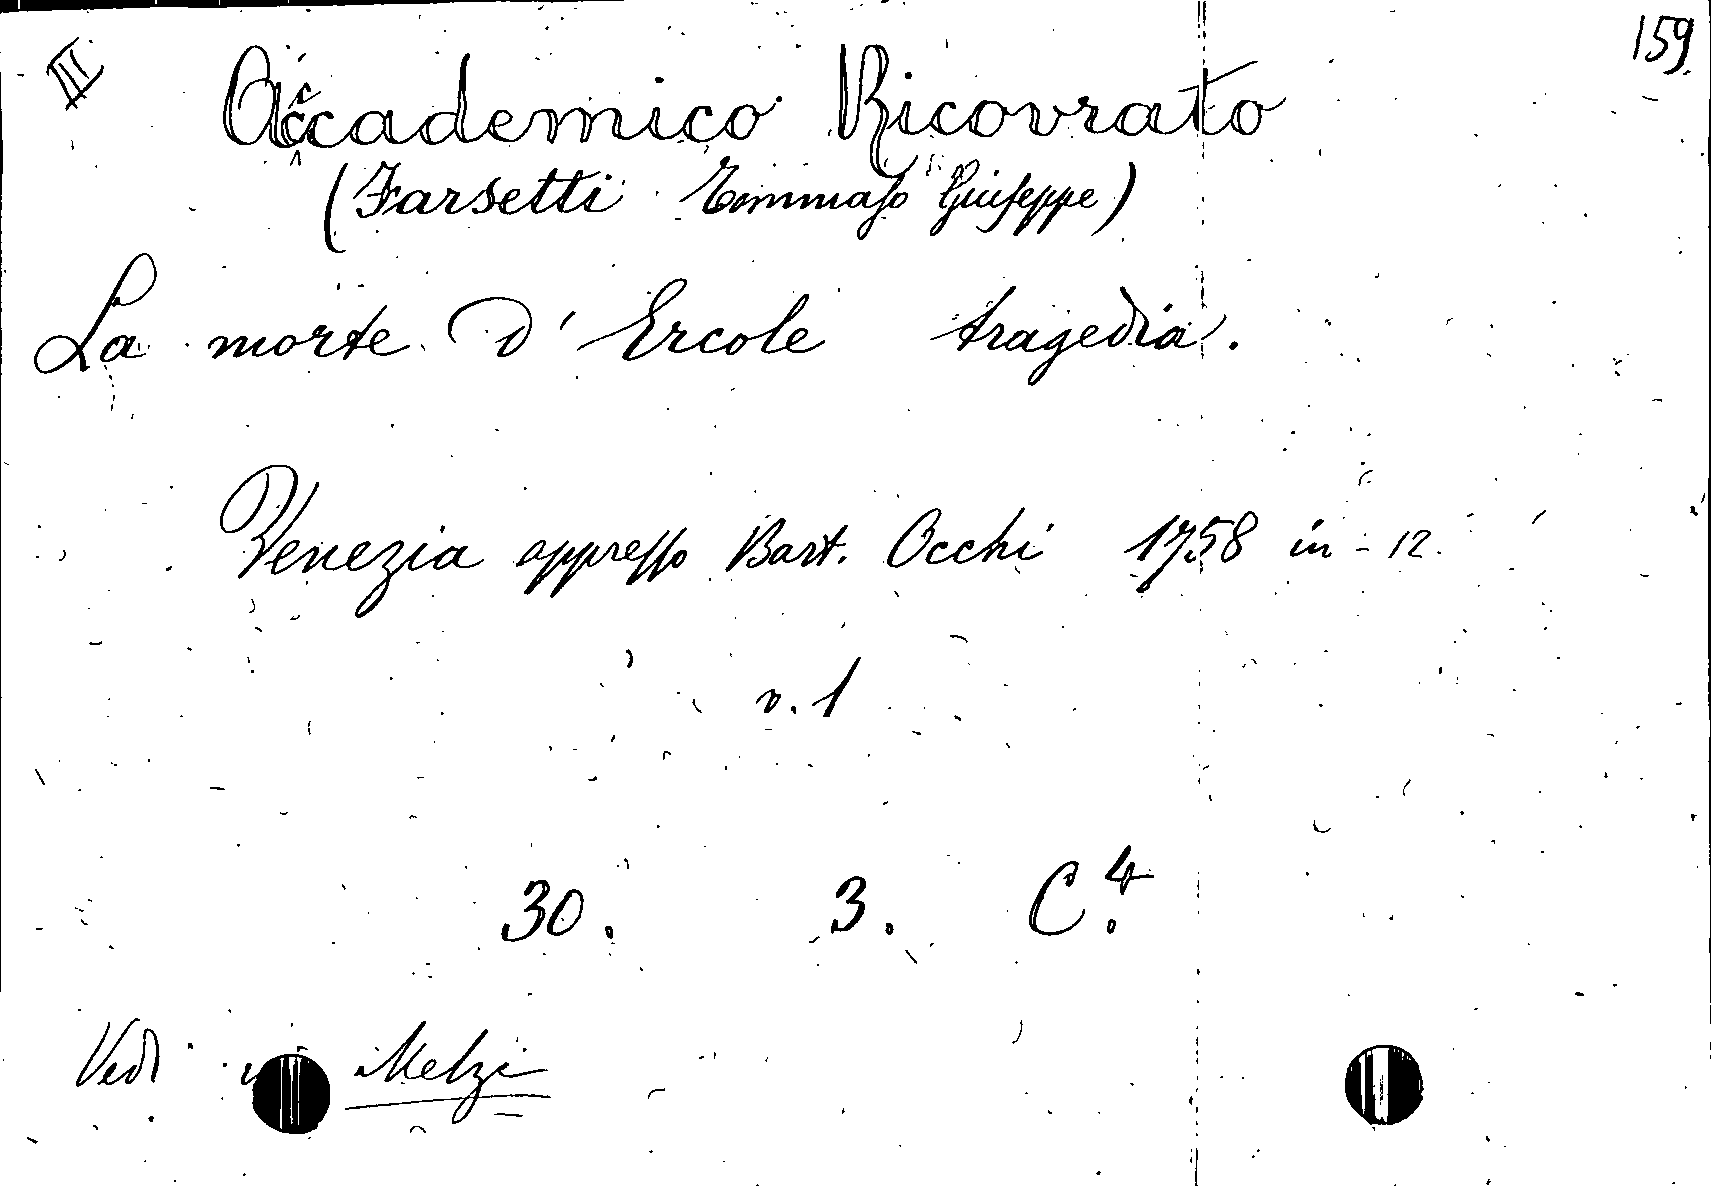 III
159.
Accademico Ricovrato
(Farsetti Tommaso Giuseppe)
La morte d' Ercole tragedia.
Venezia appresso Bart. Occhi 1758 in - 12.
v. 1
30. 3. C.4
Vedi Melzi